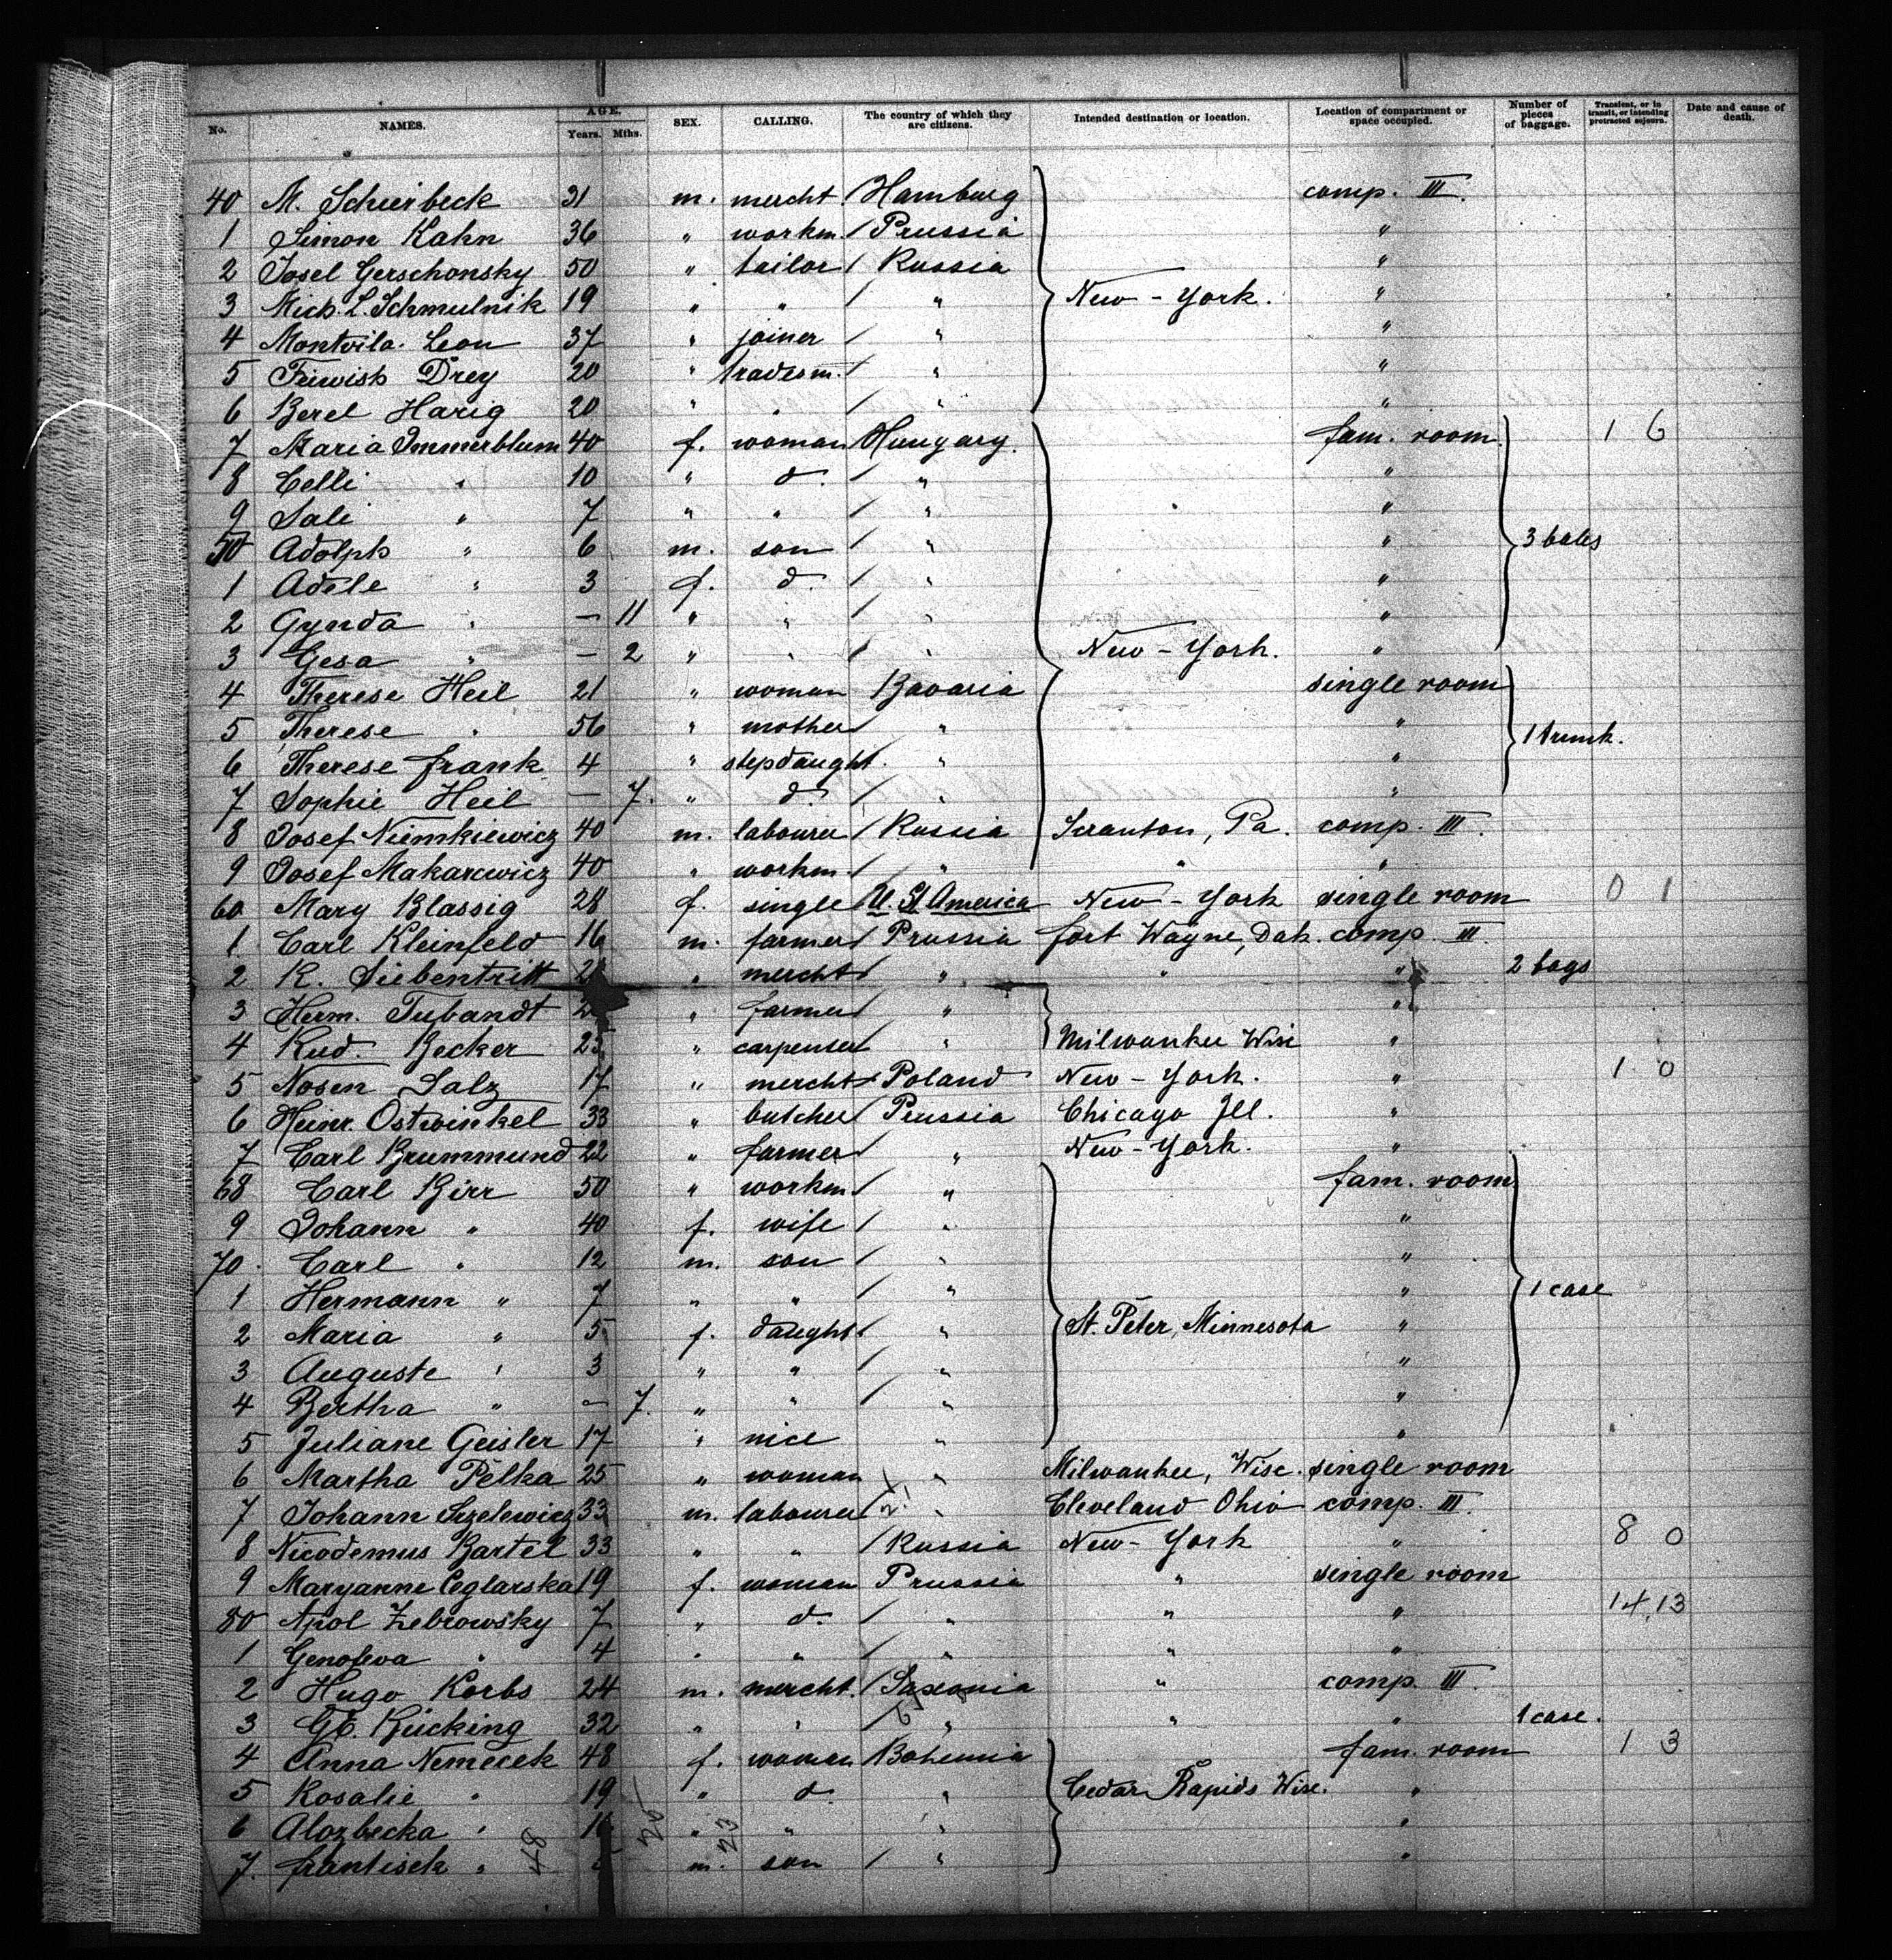 No. NAMES. AGE. Years. Mths. SEX. CALLING. The country of which they are citizens. Intended destination or location. Location of compartment or space occupied. Number of pieces of baggage. Transient, or in transit, or intending protracted sojourn. Date and cause of death.
40 M. Schierbeck 31 m. mercht Hamburg comp. III.
1 Simon Kahn 36 " workm. / Prussia "
2 Josel Gerschonsky 50 " tailor / Russia "
3 Mich. L. Schmulnik 19 " " / " New-York. "
4 Montvila Leon 37 " joiner / " "
5 Feiwish Drey 20 " tradesm. / " "
6 Berel Harig 20 " " / " "
7 Maria Immerblum 40 f. woman Hungary. fam. room 1 6
8 Celli " 10 " d. / " "
9 Sali " 7 " " / " "
50 Adolph " 6 m. son / " " 3 bales
1 Adele " 3 f. d. / " "
2 Gynda " — 11 " " / " "
3 Gesa " — 2 " " / " New-York. "
4 Therese Heil 21 " woman Bavaria single room
5 Therese " 56 " mother " " 1 trunk.
6 Therese Frank 4 " stepdaught. " "
7 Sophie Heil — 7. " d. / " "
8 Josef Niemkiewicz 40 m. labourer / Russia Scranton, Pa. comp. III.
9 Josef Makarewicz 40 " workm. / " " "
60 Mary Blassig 28 f. single U. St. America New-York single room 0 1
1 Carl Kleinfeld 16 m. farmer / Prussia Fort Wayne, Dak. comp. III.
2 K. Siebentritt " mercht / " " " 2 bags
3 Herm. Tubandt " farmer " "
4 Rud. Becker 23 " carpenter " Milwaukee Wisc "
5 Nosen Salz 17 " mercht / Poland New-York. " 1 0
6 Heinr. Ostwinkel 33 " butcher / Prussia Chicago Ill. "
7 Carl Brummund 22 " farmer / " New-York. "
68 Carl Birr 50 " workm. / " fam. room
9 Johann " 40 f. wife / " "
70. Carl " 12 m. son / " "
1 Hermann " 7 " " / " " 1 case
2 Maria " 5 f. daught / " St. Peter, Minnesota "
3 Auguste " 3 " " / " "
4 Bertha " — 7. " " / " "
5 Juliane Geisler 17 " nice " "
6 Martha Pelka 25 " woman " Milwaukee, Wisc. single room
7 Johann Szelewicz 33 m. labourer / " Cleveland Ohio comp. III.
8 Nicodemus Bartel 33 " " / Russia New-York " 8 0
9 Maryanne Ceglarska 19 f. woman Prussia " single room
80 Apol Zebrowsky 7 " d. / " " " 14,13
1 Genofeva " 4 " " / " " "
2 Hugo Korbs 24 m. mercht. / Saxonia " comp. III.
3 Bücking 32 " " / " " " 1 case.
4 Anna Nemecek 48 f. woman Bohemia fam. room 1 3
5 Rosalie " 19 " d. " Cedar Rapids Wisc. "
6 Alozbecka " " " " "
7. Frantisek " m. son / " "
48 23